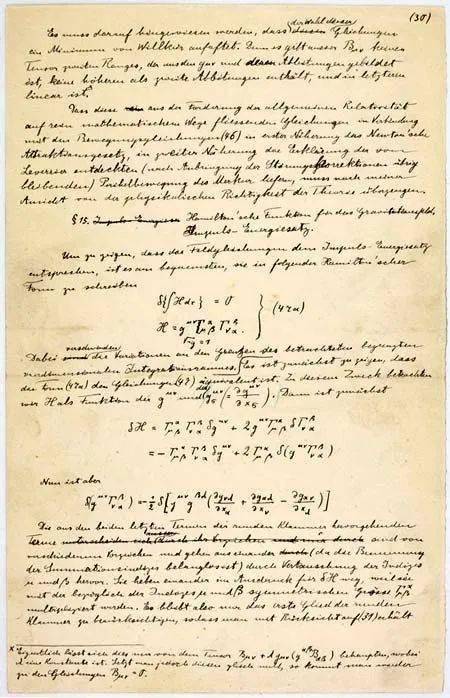 (30)
der Wahl dieser
Es muss darauf hingewiesen werden, dass diesen Gleichungen
ein Minimum von Willkür anhaftet. Denn es gibt ausser Bμν keinen
Tensor zweiten Ranges, der aus den gμν und deren Ableitungen gebildet
ist, keine höheren als zweite Ableitungen enthält, und in letzteren
linear ist.*
Dass diese aus der Forderung der allgemeinen Relativität
auf rein mathematischem Wege fliessenden Gleichungen in Verbindung
mit den Bewegungsgleichungen (46) in erster Näherung das Newton'sche
Attraktionsgesetz, in zweiter Näherung die Erklärung der von
Leverrier entdeckten (nach Anbringung der Störungskorrektionen übrig
bleibenden) Perihelbewegung des Merkur liefern, muss nach meiner
Ansicht von der physikalischen Richtigkeit der Theorie überzeugen.
§ 15. Hamilton'sche Funktion für das Gravitationsfeld,
Impuls-Energiesatz.
Um zu zeigen, dass die Feldgleichungen dem Impuls-Energiesatz
entsprechen, ist es am bequemsten, sie in folgender Hamilton'scher
Form zu schreiben
δ{∫H dτ} = 0
H = g^μν Γ^α_μβ Γ^β_να } (47a)
√-g = 1
Dabei verschwinden die Variationen an den Grenzen des betrachteten begrenzten
vierdimensionalen Integrationsraumes. Es ist zunächst zu zeigen, dass
die Form (47a) den Gleichungen (47) äquivalent ist. Zu diesem Zweck betrachten
wir H als Funktion der g^μν und der g^μν_σ (= ∂g^μν/∂x_σ). Dann ist zunächst
δH = Γ^α_μβ Γ^β_να δg^μν + 2 g^μν Γ^α_μβ δΓ^β_να
= - Γ^α_μβ Γ^β_να δg^μν + 2 Γ^α_μβ δ(g^μν Γ^β_να)
Nun ist aber
δ(g^μν Γ^β_να) = -½ δ[g^μν g^βλ (∂g_νλ/∂x_α + ∂g_αλ/∂x_ν - ∂g_αν/∂x_λ)]
Die aus den beiden letzten Termen der runden Klammer hervorgehenden
Terme sind von
verschiedenem Vorzeichen und gehen auseinander (da die Benennung
der Summationsindizes belanglos ist) durch Vertauschung der Indizes
μ und β hervor. Sie heben einander im Ausdruck für δH weg, weil sie
mit der bezüglich der Indizes μ und β symmetrischen Grösse Γ^α_μβ
multipliziert werden. Es bleibt also nur das erste Glied der runden
Klammer zu berücksichtigen, sodass man mit Rücksicht auf (31) erhält
* Eigentlich lässt sich dies nur von dem Tensor Bμν + λ gμν (g^αβ Bαβ) behaupten, wobei
λ eine Konstante ist. Setzt man jedoch diesen gleich null, so kommt man wieder
zu den Gleichungen Bμν = 0.